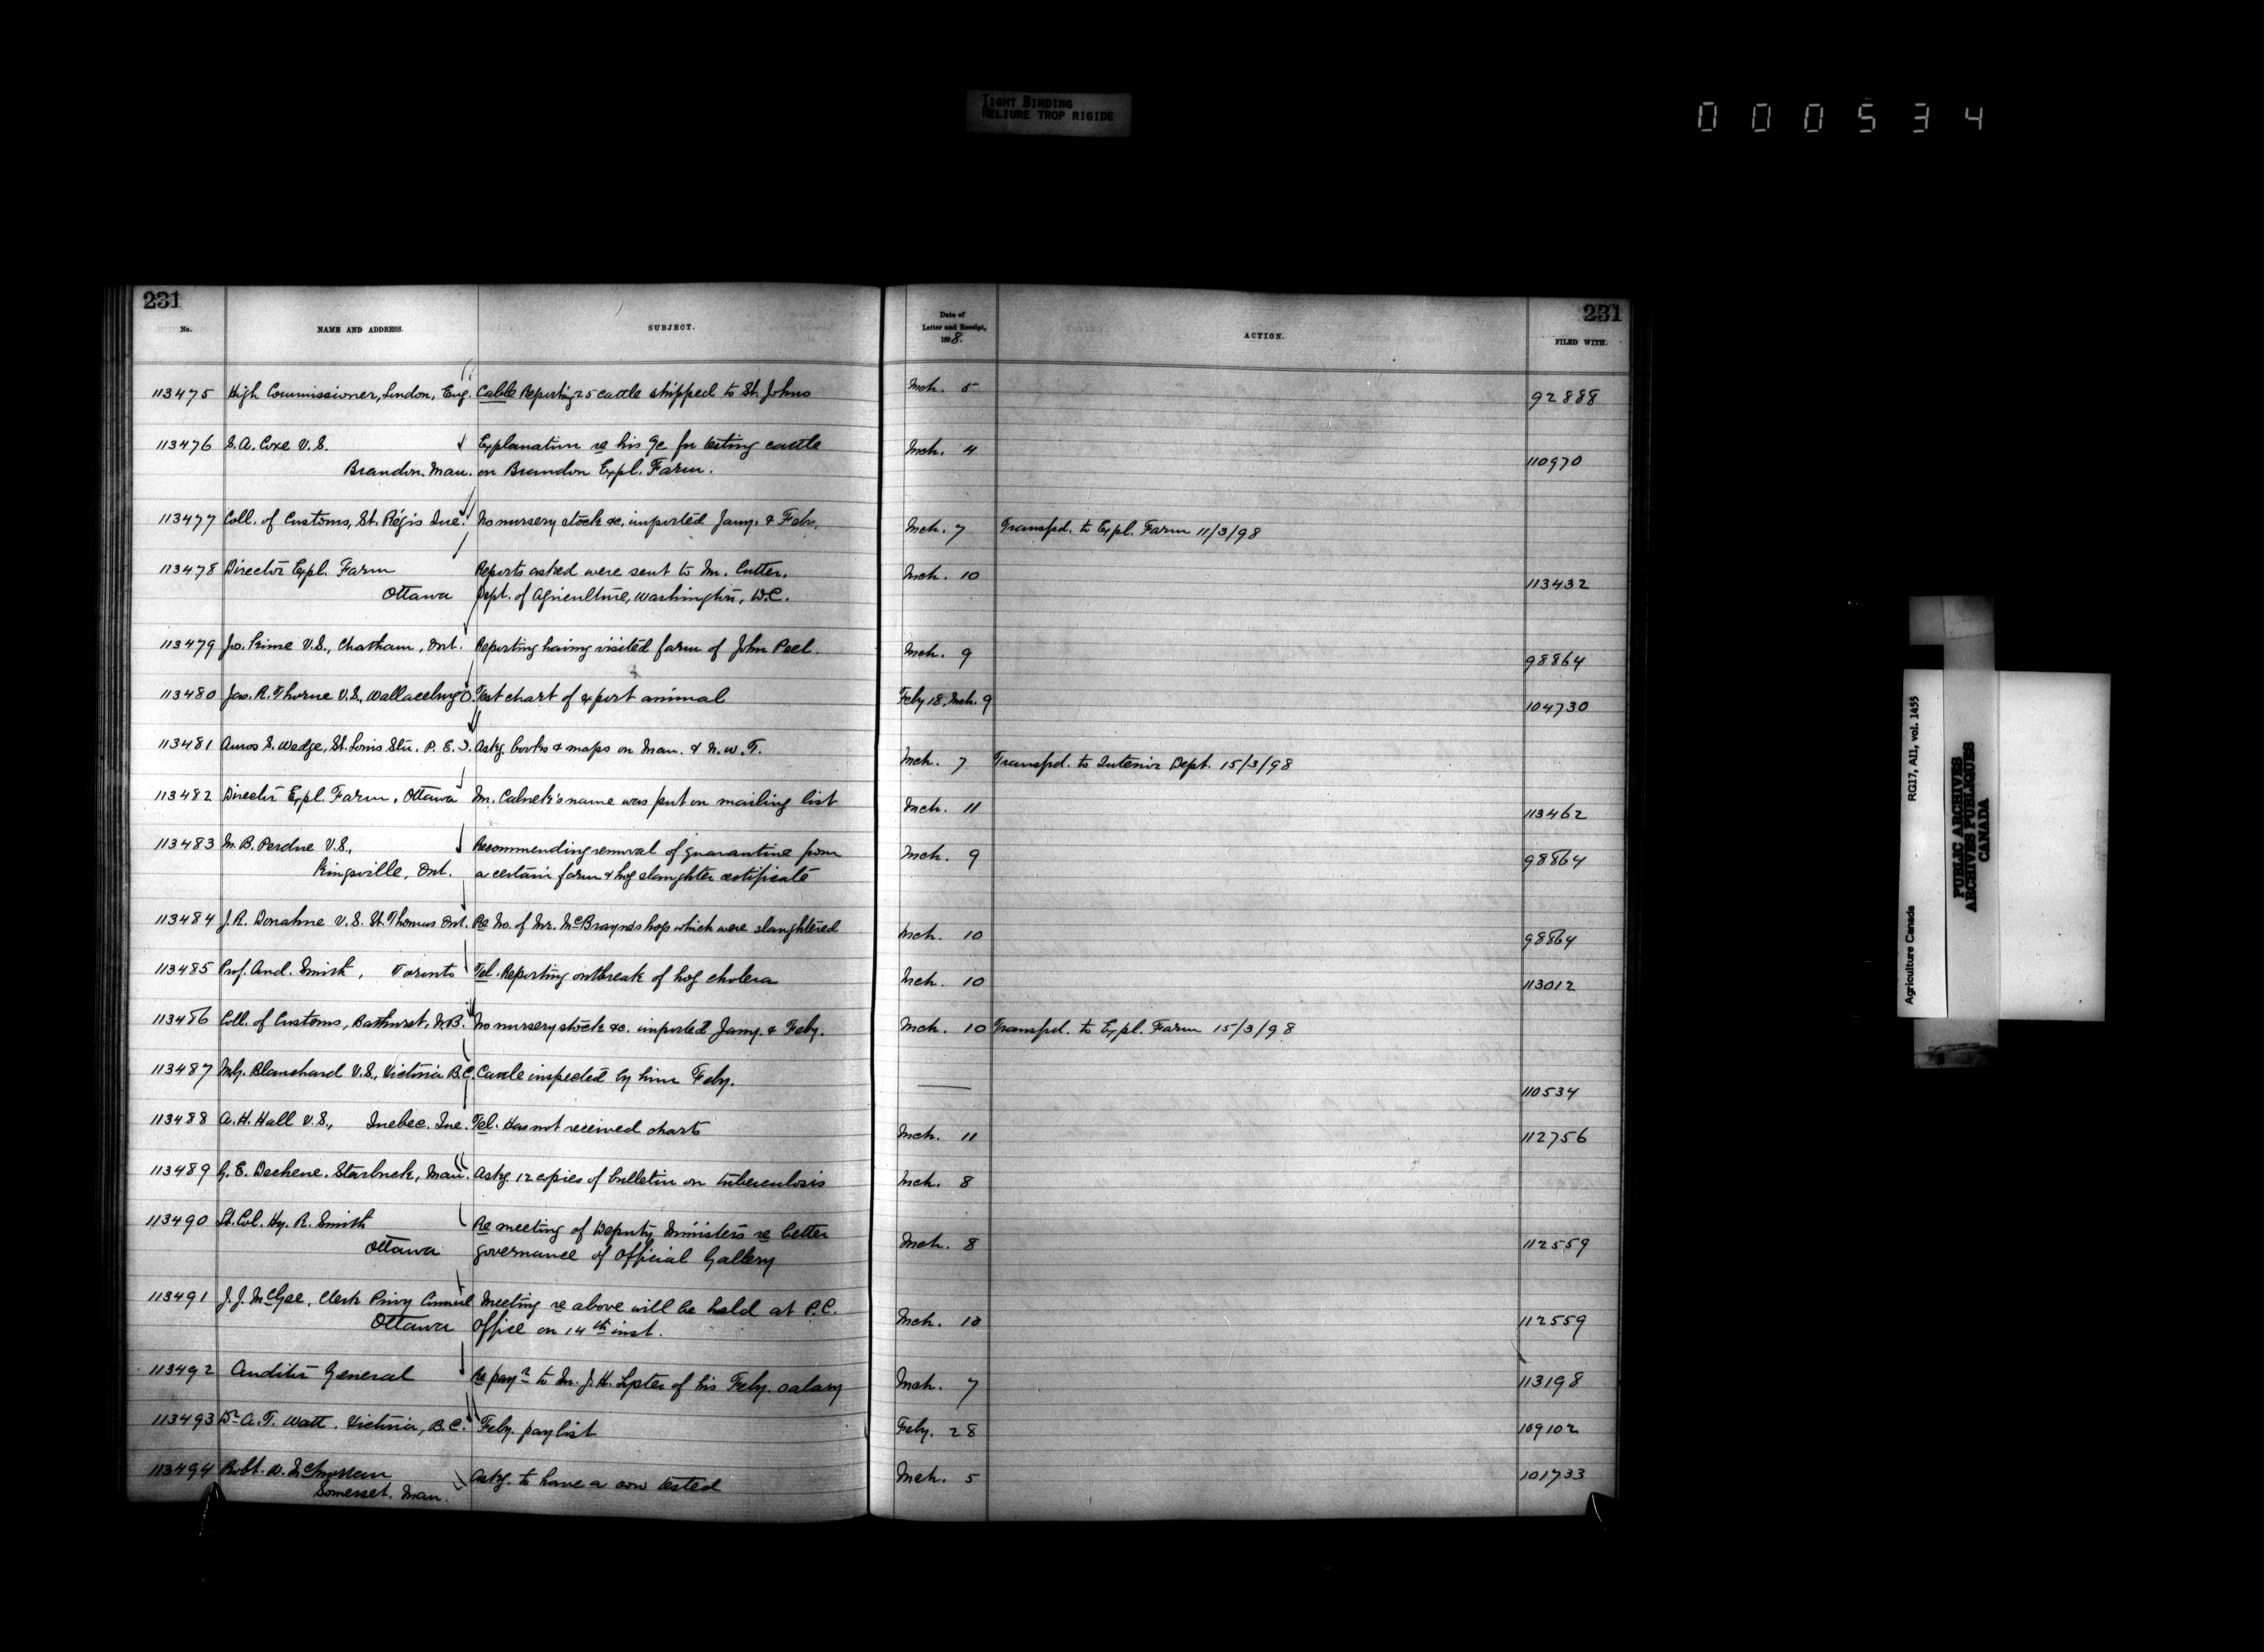 TIGHT BINDING
RELIURE TROP RIGIDE
000534
231
231
No.
NAME AND ADDRESS.
SUBJECT.
Date of
Letter and Receipt,
1898.
ACTION.
FILED WITH.
113475 High Commissioner, London, Eng. Cable Reporting 25 cattle shipped to St. Johns Mch. 5 92888
113476 S. A. Coxe V.S. Explanation re his 9c for testing cattle Mch. 4 110970
Brandon. Man. on Brandon Expl. Farm.
113477 Coll. of Customs, St. Régis Que. No nursery stock &c. imported Jany. & Feb. Mch. 7 Transfd. to Expl. Farm 11/3/98
113478 Director Expl. Farm Reports asked were sent to Mr. Cutter, Mch. 10 113432
Ottawa Dept. of Agriculture, Washington, D.C.
113479 Jno. Kime V.S., Chatham, Ont. Reporting having visited farm of John Peel. Mch. 9 98864
113480 Jas. R. Thorne V.S., Wallaceburg O. Test chart of export animal Feby 18, Mch. 9 104730
113481 Amos S. Wedge, St. Louis Stn. P. E. I. Askg. books & maps on Man. & N.W.T. Mch. 7 Transfd. to Interior Dept. 15/3/98
113482 Director Expl. Farm, Ottawa Mr. Calnek's name was put on mailing list Mch. 11 113462
113483 M. B. Perdue V.S., Recommending removal of quarantine from Mch. 9 98864
Kingsville, Ont. a certain farm & hog slaughter certificate
113484 J. R. Donahue V.S. St. Thomas Ont. Re No. of Mr. McBrayne's hogs which were slaughtered Mch. 10 98864
113485 Prof. And. Smith, Toronto Tel. Reporting outbreak of hog cholera Mch. 10 113012
113486 Coll. of Customs, Bathurst, N.B. No nursery stock &c. imported Jany. & Feby. Mch. 10 Transfd. to Expl. Farm 15/3/98
113487 Blanchard V.S., Victoria B.C. Cattle inspected by him Feby. — 110534
113488 A. H. Hall V.S., Quebec. Que. Tel. Has not received charts Mch. 11 112756
113489 G. E. Dechene. Starbuck, Man. Askg. 12 copies of bulletin on tuberculosis Mch. 8
113490 Lt. Col. Hy. R. Smith Re meeting of Deputy Ministers re better Mch. 8 112559
Ottawa governance of Official Gallery
113491 J. J. McGee, Clerk Privy Council Meeting re above will be held at P.C. Mch. 10 112559
Ottawa Office on 14th inst.
113492 Auditor General Re payt to Mr. J. H. Lyster of his Feby. salary Mch. 7 113198
113493 Dr A. T. Watt. Victoria, B.C. Feby. paylist Feby. 28 109102
113494 Robt. W. McMorran Askg. to have a cow tested Mch. 5 101733
Somerset. Man.
Agriculture Canada RG17, AII, vol. 1455
PUBLIC ARCHIVES
ARCHIVES PUBLIQUES
CANADA